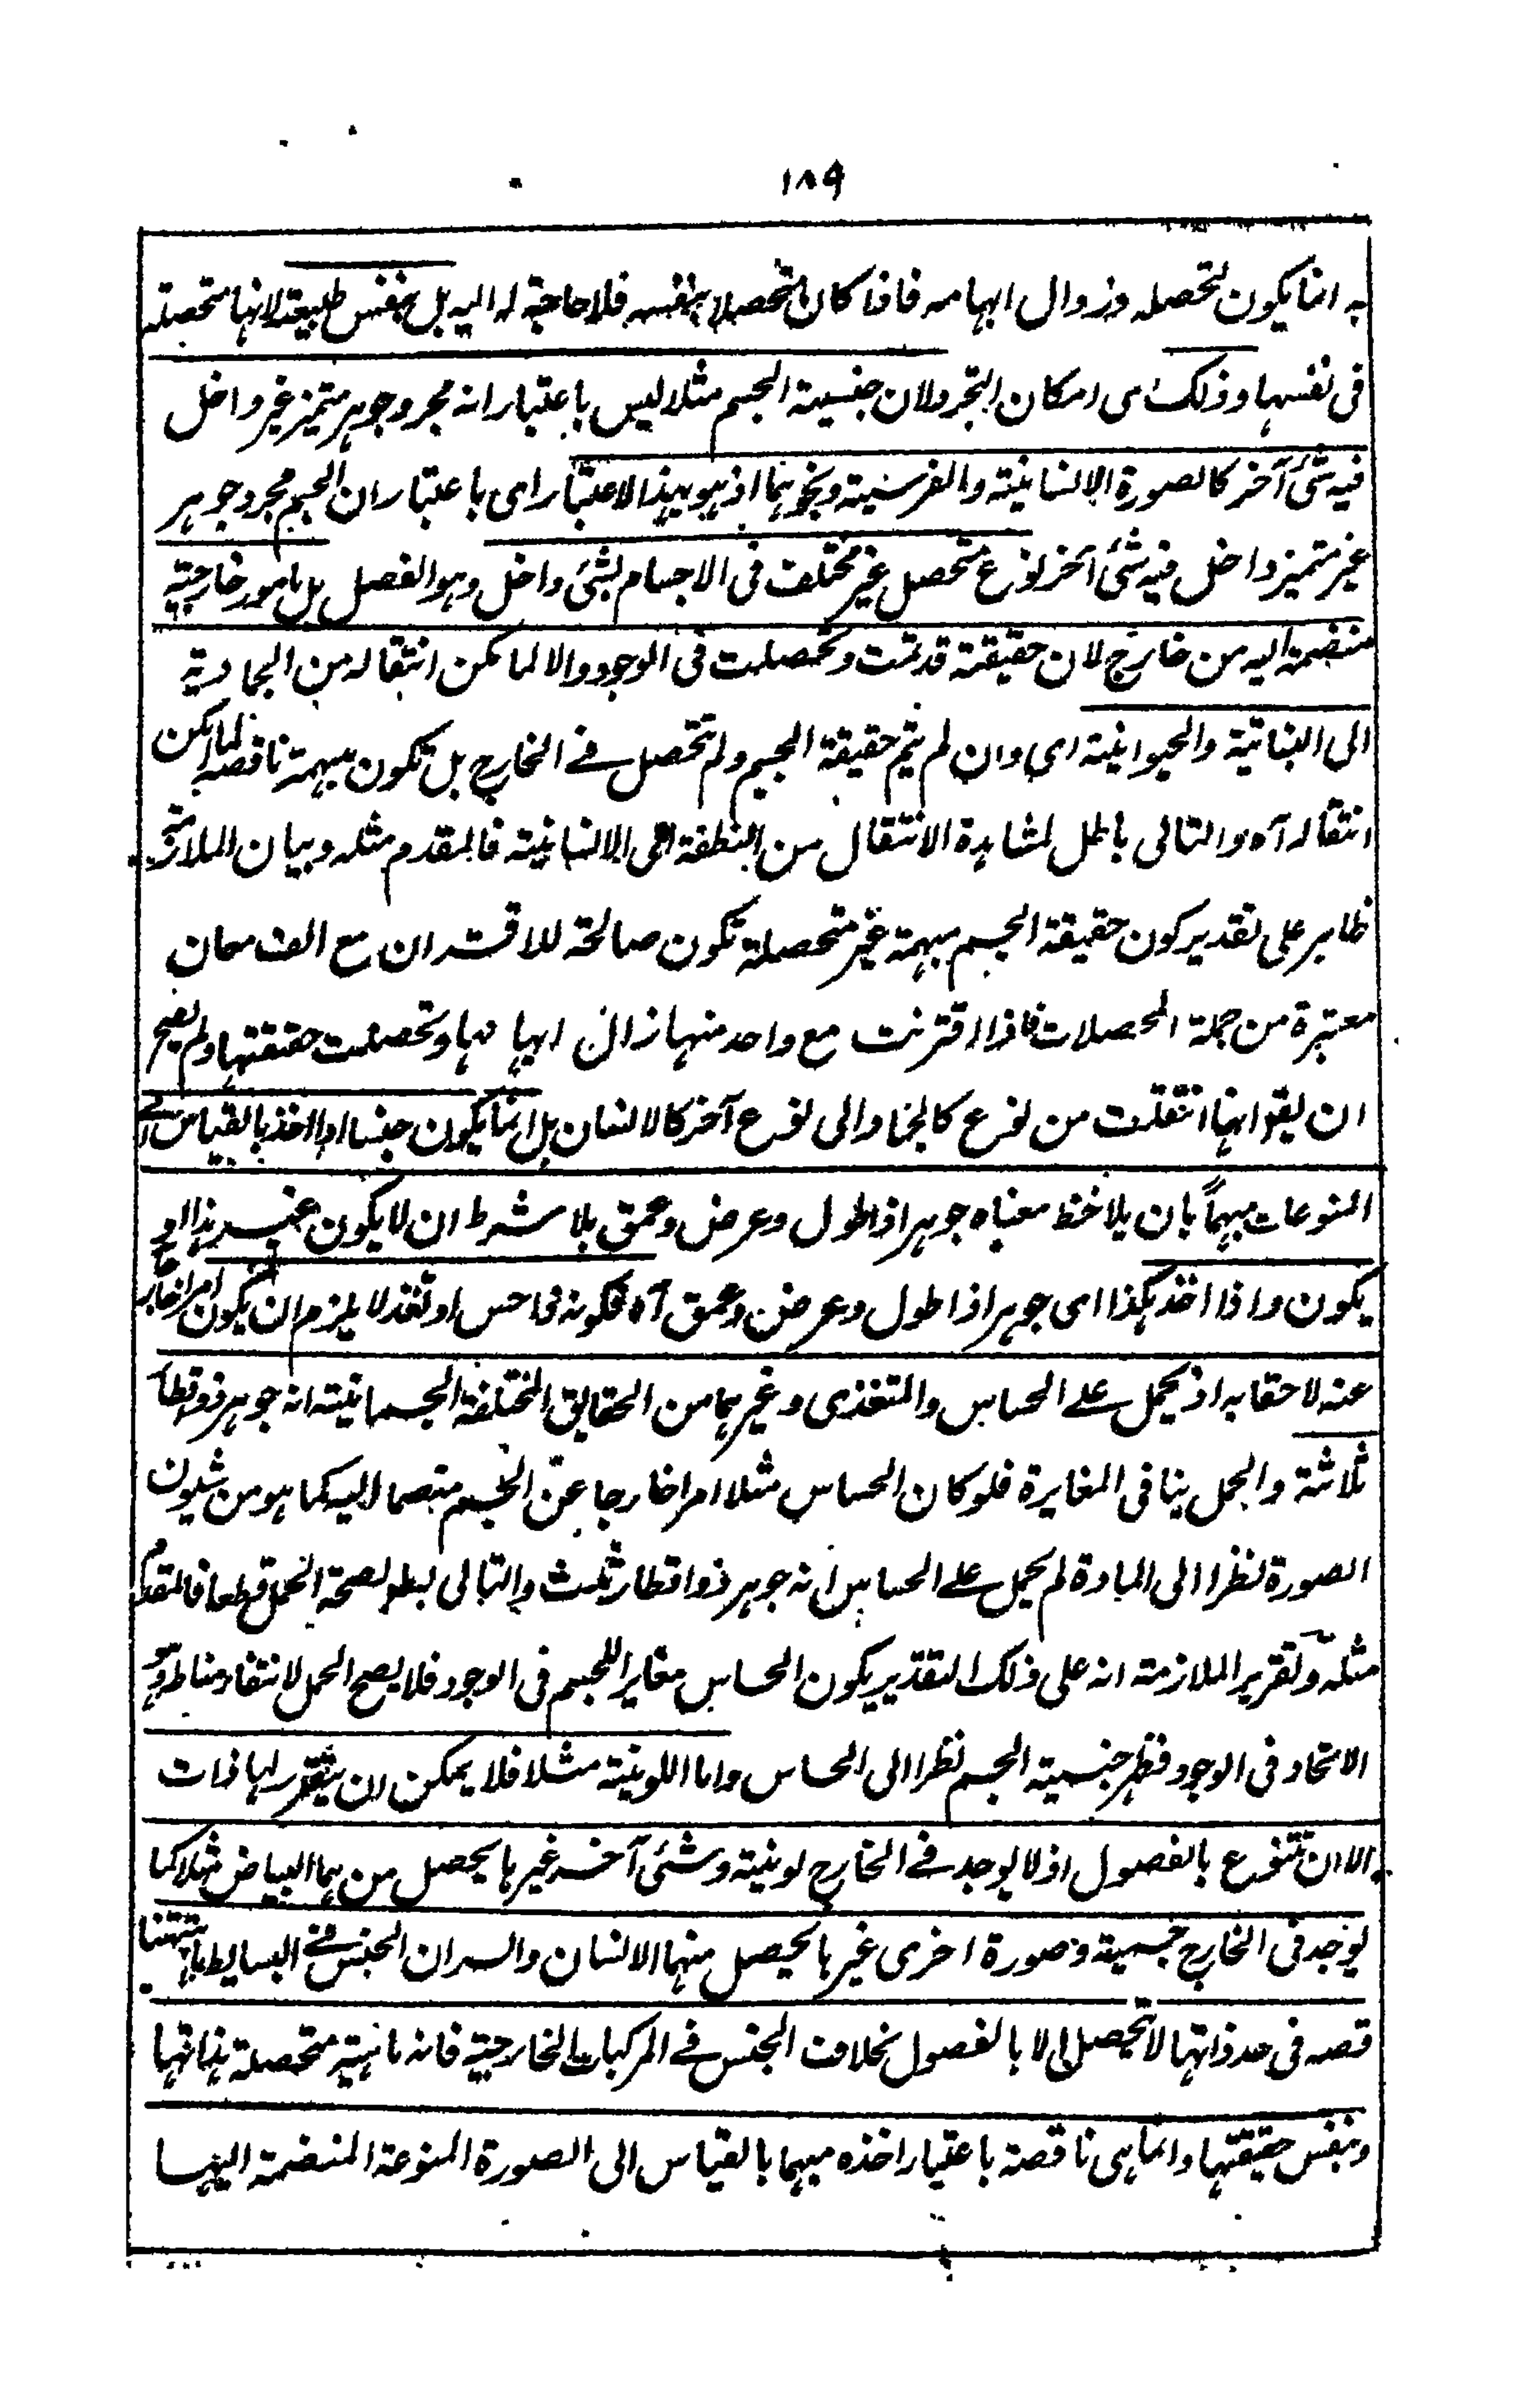 ١٨٩
به انما يكون لتحصله وزوال ابهامه فاذا كان متحصلا بنفسه فلا حاجة له اليه بل بنفس طبيعة لانها متحصلة
فى نفسها وذلك اى امكان التجرد لان جنسية الجسم مثلا ليس باعتبار انه مجرد جوهر متميز غير داخل
فيه شئ آخر كالصورة الانسانية والفرسية ونحوهما اذ هو بهذا الاعتبار اى باعتبار ان الجسم مجرد جوهر
غير متميز داخل فيه شئ آخر نوع متحصل غير مختلف فى الاجسام بشئ داخل وهو الفصل بل بامور خارجية
منضمة اليه من خارج لان حقيقة قد تمت وتحصلت فى الوجود والا لما يمكن انتقاله من الجمادية
الى النباتية والحيوانية اى وان لم يتم حقيقة الجسم ولم تتحصل فے الخارج بل تكون مبهمة ناقصة لما امكن
انتقاله آه والتالى باطل لمشاهدة الانتقال من النطفة الى الانسانية فالمقدم مثله وبيان الملازمة
ظاهر على تقدير كون حقيقة الجسم مبهمة غير متحصلة تكون صالحة للاقتران مع الف معان
معتبرة من جملة المحصلات فاذا اقترنت مع واحد منها زال ابهامها وتحصلت حقيقتها ولم يصح
ان يقو انها انتقلت من نوع كالجماد الى نوع آخر كالانسان بل انما يكون جنسا اذا اخذ بالقياس الے
المنوعات مبهماً بان يلاحظ معناه جوهر اذا طول وعرض وعمق بلا شرط ان لا يكون غير هذا او
يكون واذا اخذ هكذا اى جوهر اذا طول وعرض وعمق آه فكونه ذا حس او تغذ لا يلزم ان يكون امرا خارجا
عنه لاحقا به اذ يحمل علے الحساس والمتغذى وغيرهما من الحقايق المختلفة الجسمانية انه جوهر ذو اقطار
ثلاثة والحمل ينافى المغايرة فلو كان الحساس مثلا امرا خارجا عن الجسم منضما اليه كما هو من شئون
الصورة نظرا الى المادة لم يحمل علے الحساس انه جوهر ذو اقطار ثلث والتالى بط لصحة الحمل قطعا فالمقدم
مثله وتقرير الملازمة انه على ذلك التقدير يكون الحساس مغايرا للجسم فى الوجود فلا يصح الحمل لانتفاء مناطه وهو
الاتحاد فى الوجود فظهر جنسية الجسم نظرا الى الحساس واما اللونية مثلا فلا يمكن ان يتقرر لها ذات
الا ان تتنوع بالفصول اذ لا يوجد فے الخارج لونية وشئ آخر غيرها يحصل منهما البياض مثلا كما
يوجد فى الخارج جسمية وصورة اخرى غيرها يحصل منهما الانسان والسر ان الجنس فے البسايط
قصه فى حد ذاتها لا تتحصل الا بالفصول بخلاف الجنس فے المركبات الخارجية فانه ماهية متحصلة بذاتها
وبنفس حقيقتها وانما هى ناقصة باعتبار اخذه مبهما بالقياس الى الصورة المنوعة المنضمة اليها